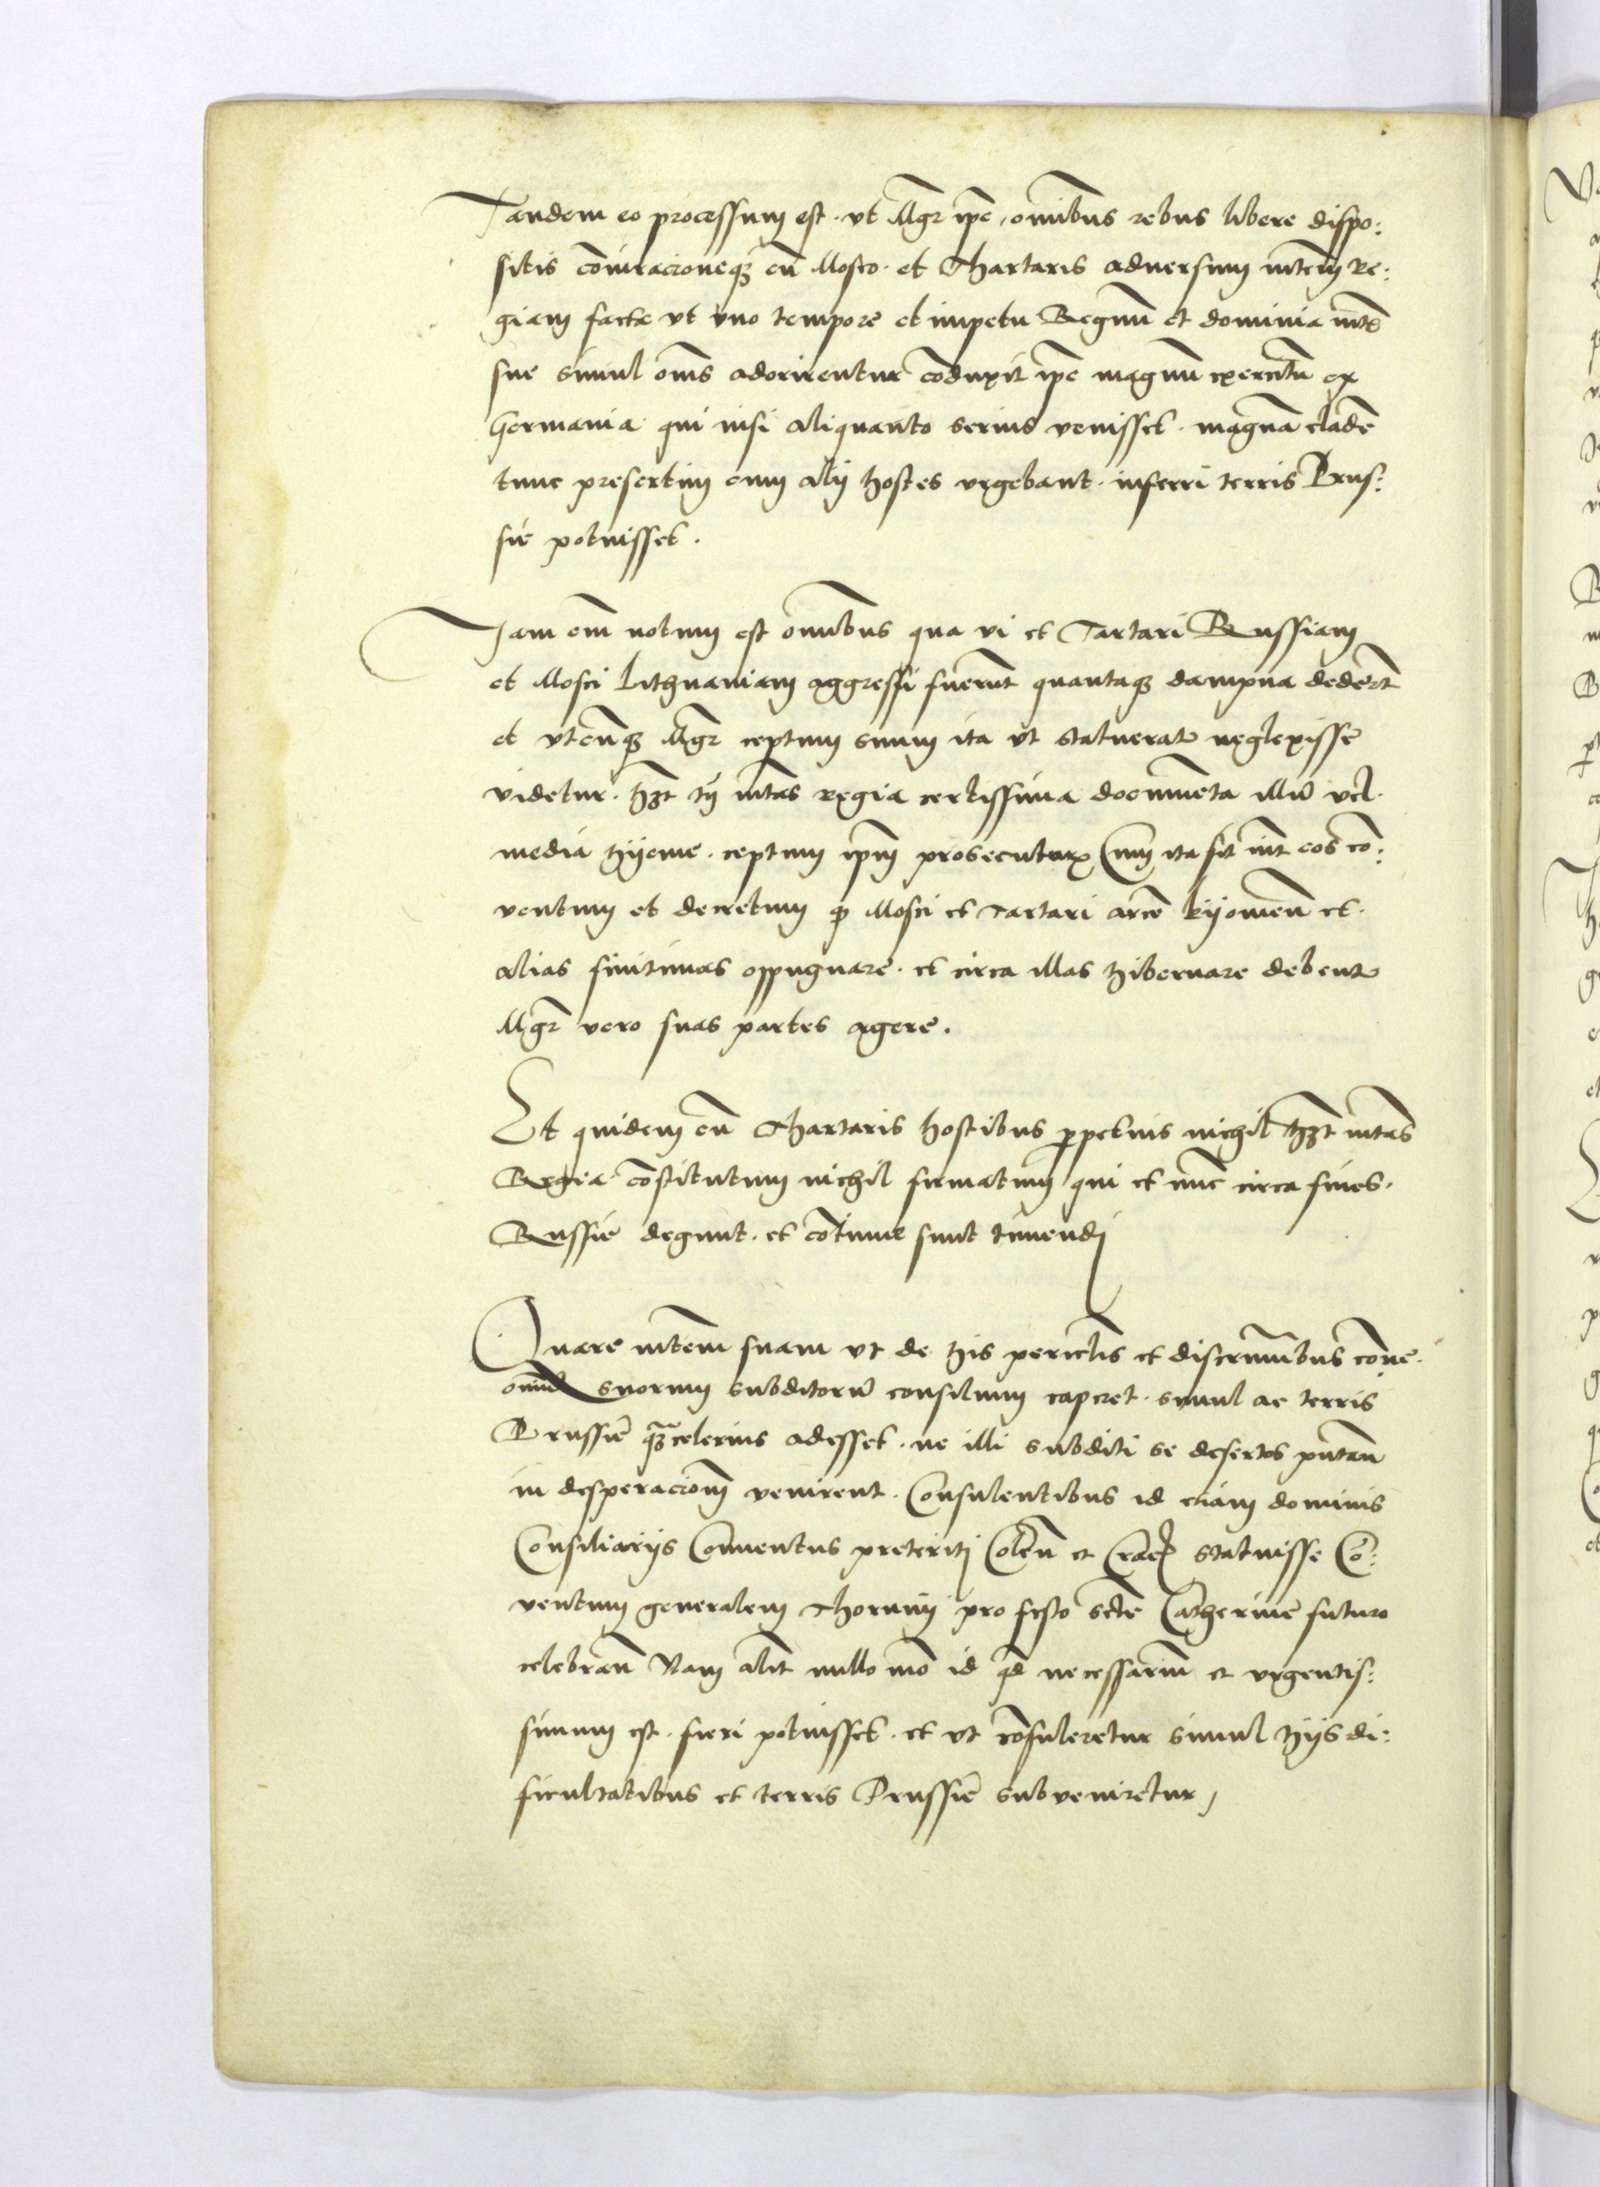 Tandem eo processum est. vt Mgr̃ ip̃e, om̃ibus rebus libere dispo:
sitis coniuracioneq₃ cũ Mosco. et Thartaris aduersum mtem Re:
giam facta vt vno tempore et impetu Regnũ et dominia mtis
sue simul om̃s adorirentur cõduxit ip̃e magnũ exercitũ ex
Germania qui nisi aliquanto serius venisset. magnã cladẽ
tunc presertim cum alij hostes vrgebant. inferri terris Prus:
sie potuisset.
Jam em̃ notum est om̃ibus qua vi et Tartari Russiam
et Mosci Lithuaniam aggressi fuerũt quantaq₃ dampna dedert̃
et vtcũq₃ Mgr̃ ceptum suum ita vt statuerat neglexisse
videtur. h₃t tñ mtas regia certissima documẽta illũ vel.
media hyeme. ceptum ip̃m prosecuturũ Cum ita sit int̃ eos cõ:
ventum et decretum q̃ Mosci et Tartari arcẽ kyouieñ et.
alias finitimas oppugnare. et circa illas hibernare debent
Mgr̃ vero suas partes agere.
Et quidem cũ Thartaris hostibus ꝑpetuis nichil h₃t mtas
Regia cõstitutum nichil firmatum qui et nũc circa fines.
Russie degunt. et cõtinue sunt timendj
Quare mtem suam vt de his pericl̃is et discrimĩbus cõne.
om̃iũ suorum subditorũ consilium caperet. simul ac terris
Prussie q̃₃celerius adesset. ne illi subditi se desertos putañ
in desperacionẽ venirent. Consulentibus id etiam dominis
Consiliarijs Conuentus preteritj Coleñ et Craco statuisse Cõ:
ventum generalem Thorunij pro festo scte Catherine futuro
celebrañ Nam alit̃ nullo mõ id qd̃ necessariũ et vrgentis:
simum est. fieri potuisset. et vt cõsuleretur simul hijs di:
ficultatibus et terris Prussie subveniretur,